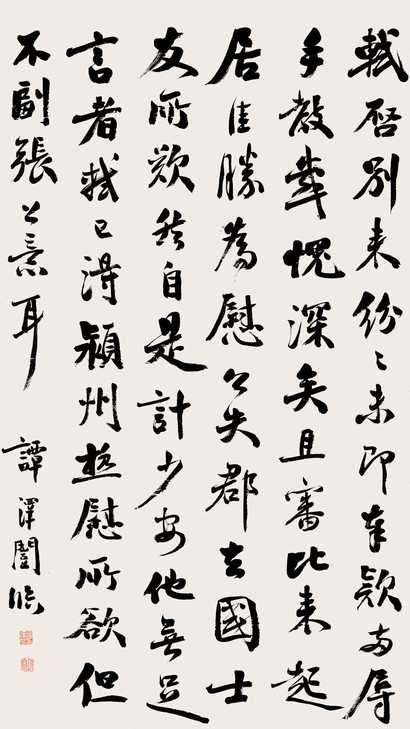 軾啓別来紛々未即奉欵兩辱
手教辜愧深矣且審比来起
居佳勝為慰公失郡去國士
友所歎然自是計少安他無足
言者軾已得潁州極慰所欲但
不副張公意耳
譚澤闓臨